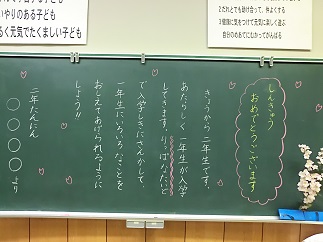 いやりのある子ども
るく元気でたくましい子ども
2だれとでも助け合って、仲よくする
3健康に気をつけて元気に楽しく遊ぶ
自分のめあてにむかってがんばる
しんきゅう
おめでとうございます
きょうから二年生です。
あたらしく一年生が入学
してきます。りっぱなたいど
で入学しきにさんかして、
一年生にいろいろなことを
おしえてあげられるように
しよう!!
二年たんにん
○○○○より